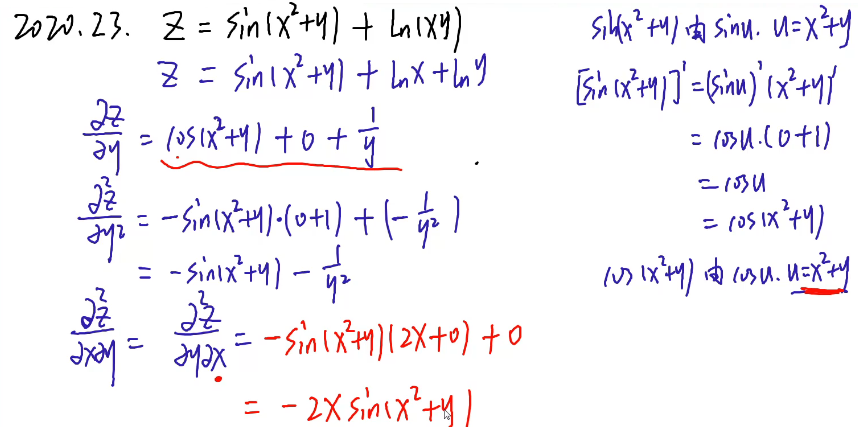 2020.23. Z = sin(x²+y) + ln(xy)
Z = sin(x²+y) + lnx + lny
∂z/∂y = cos(x²+y) + 0 + 1/y
∂²z/∂y² = -sin(x²+y)·(0+1) + (-1/y²)
= -sin(x²+y) - 1/y²
∂²z/∂x∂y = ∂²z/∂y∂x = -sin(x²+y)(2x+0) + 0
= -2x sin(x²+y)
sin(x²+y) 由 sinu. u=x²+y
[sin(x²+y)]' = (sinu)'(x²+y)'
= cosu·(0+1)
= cosu
= cos(x²+y)
cos(x²+y) 由 cosu. u=x²+y